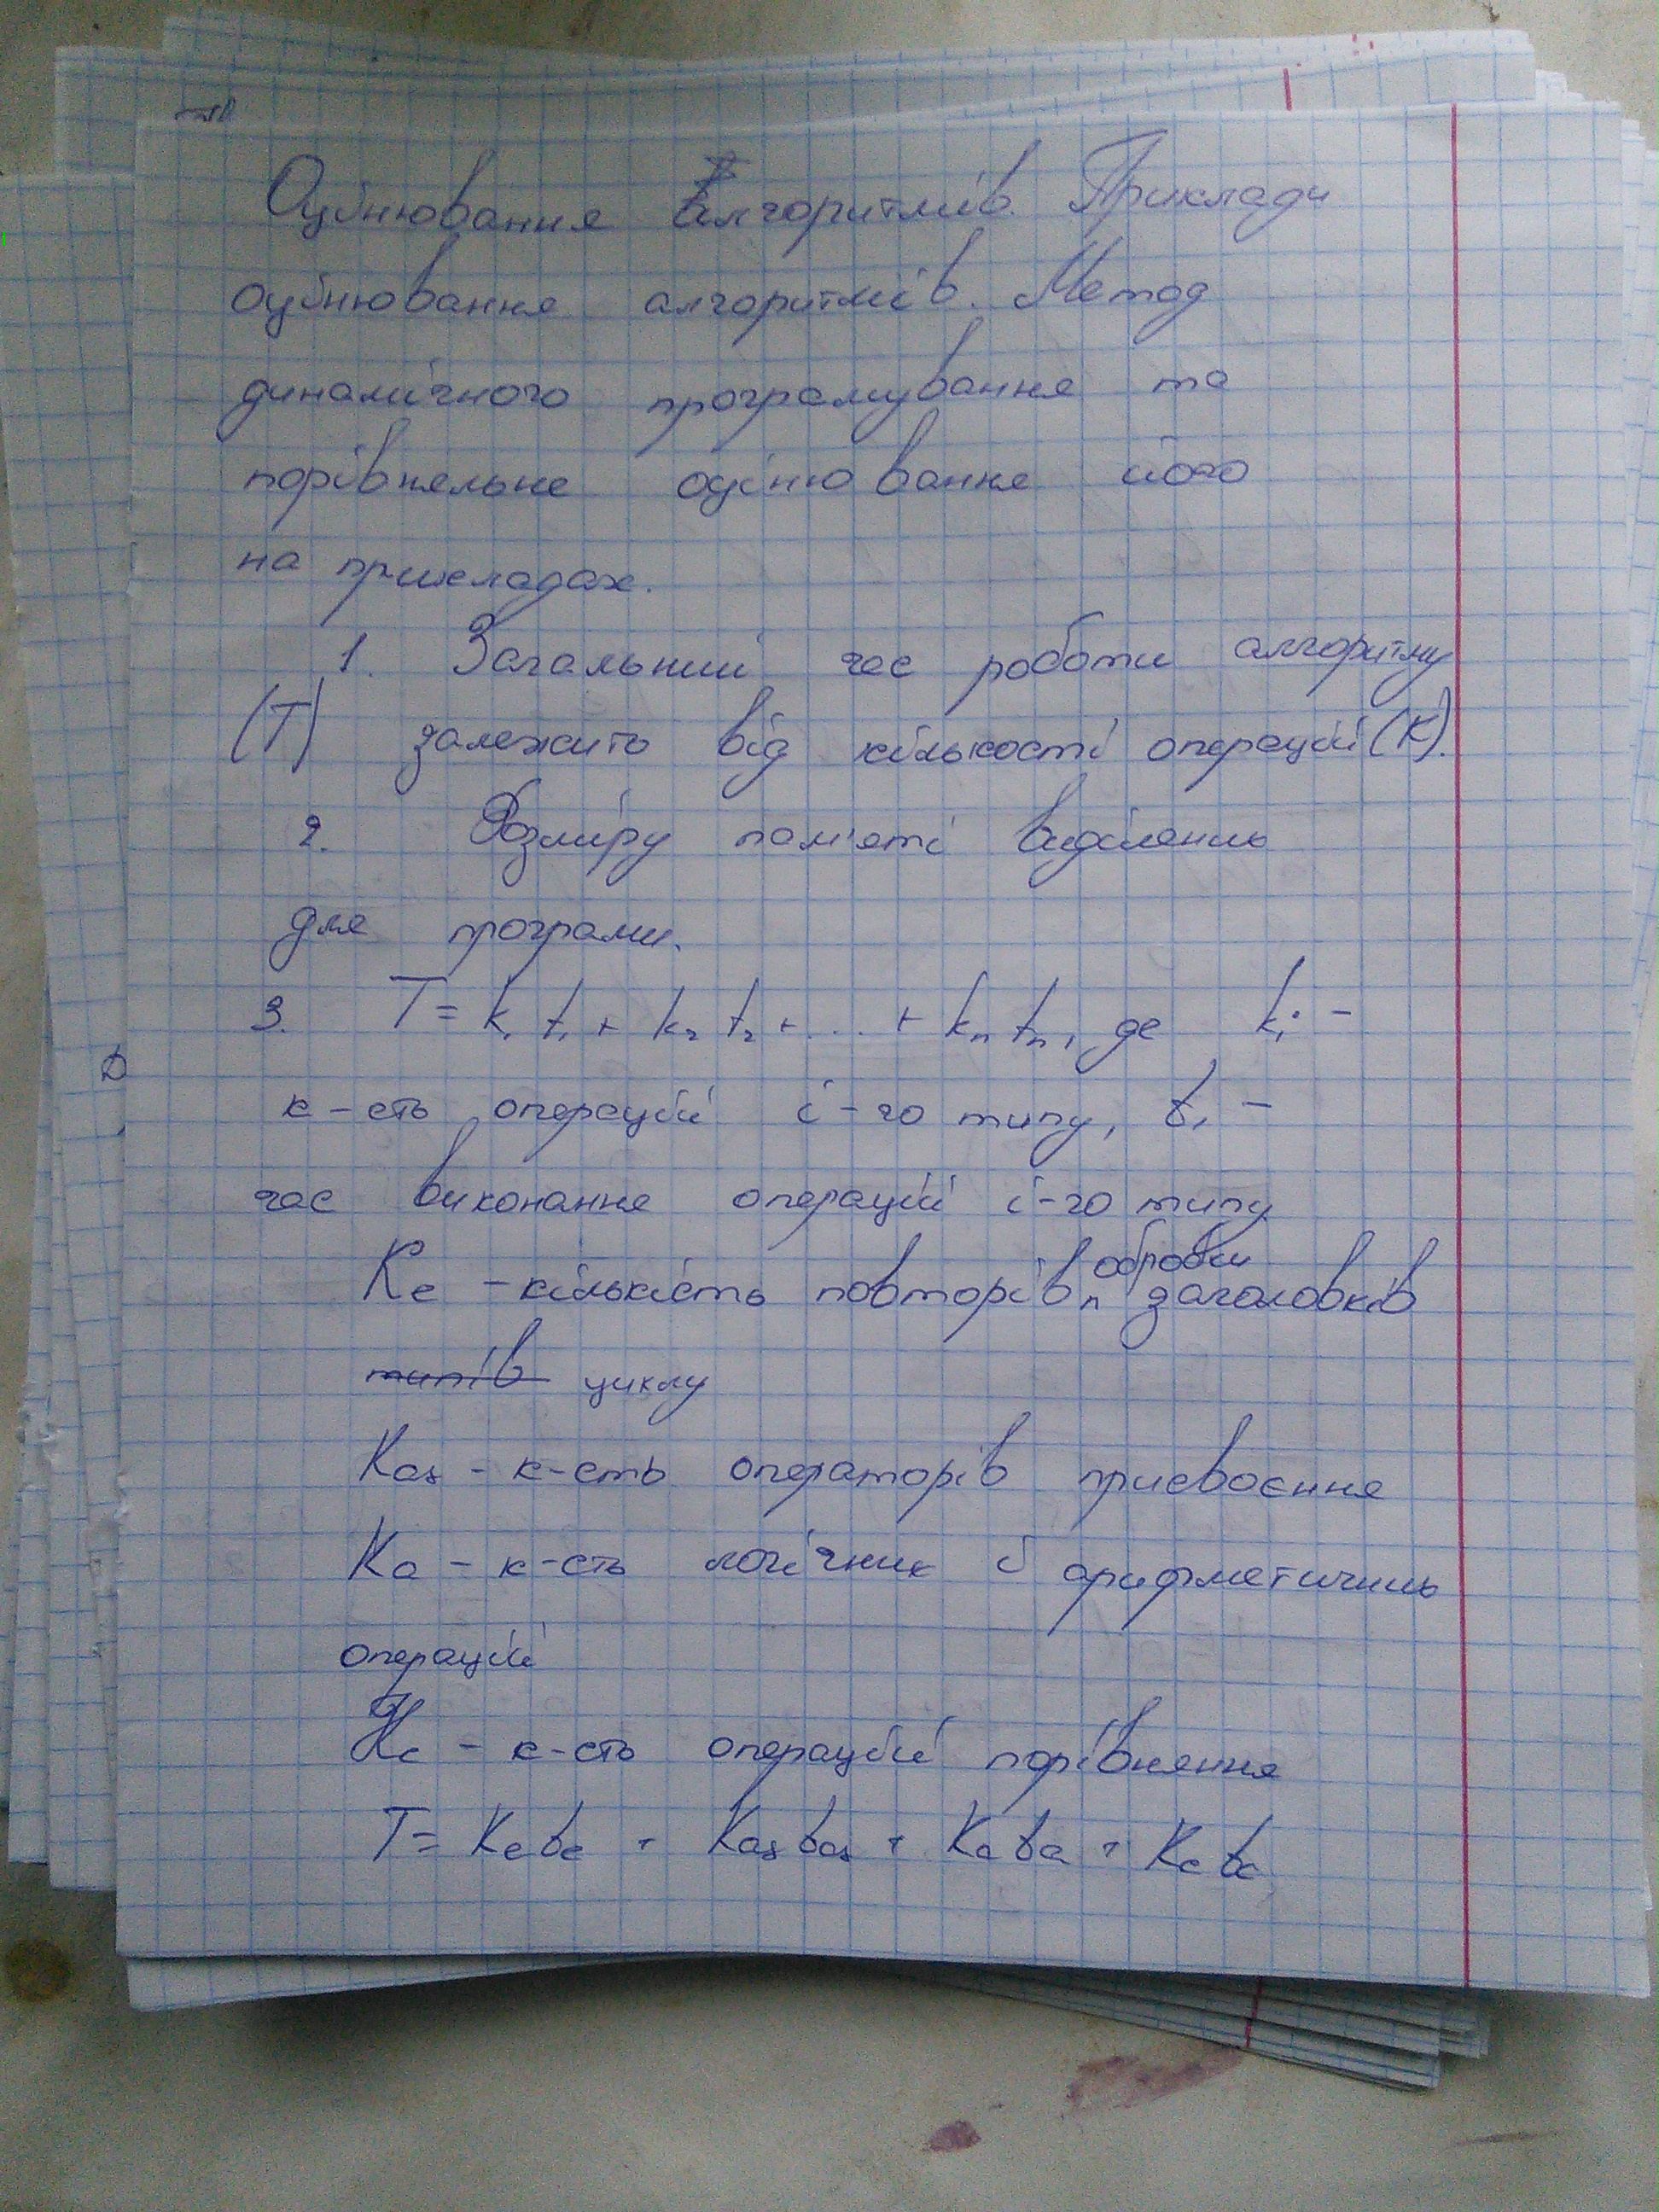 Оцінювання Алгоритмів. Приклади
оцінювання алгоритмів. Метод
динамічного програмування та
порівняльне оцінювання його
на прикладах.
1. Загальний час роботи алгоритму
(Т) залежить від кількості операцій (К).
2. Розміру пам'яті виділень
для програми.
3. T = k₁ t₁ + k₂ t₂ + ... + kₙ tₙ, де kᵢ -
к-сть операцій і-го типу, tᵢ -
час виконання операцій і-го типу
Kе - кількість повторів обробки заголовків
типів циклу
Kas - к-сть операторів присвоєння
Ka - к-сть логічних і арифметичнь
операцій
Kc - к-сть операцій порівняння
T = Kete + Kastas + Kata + Kctc